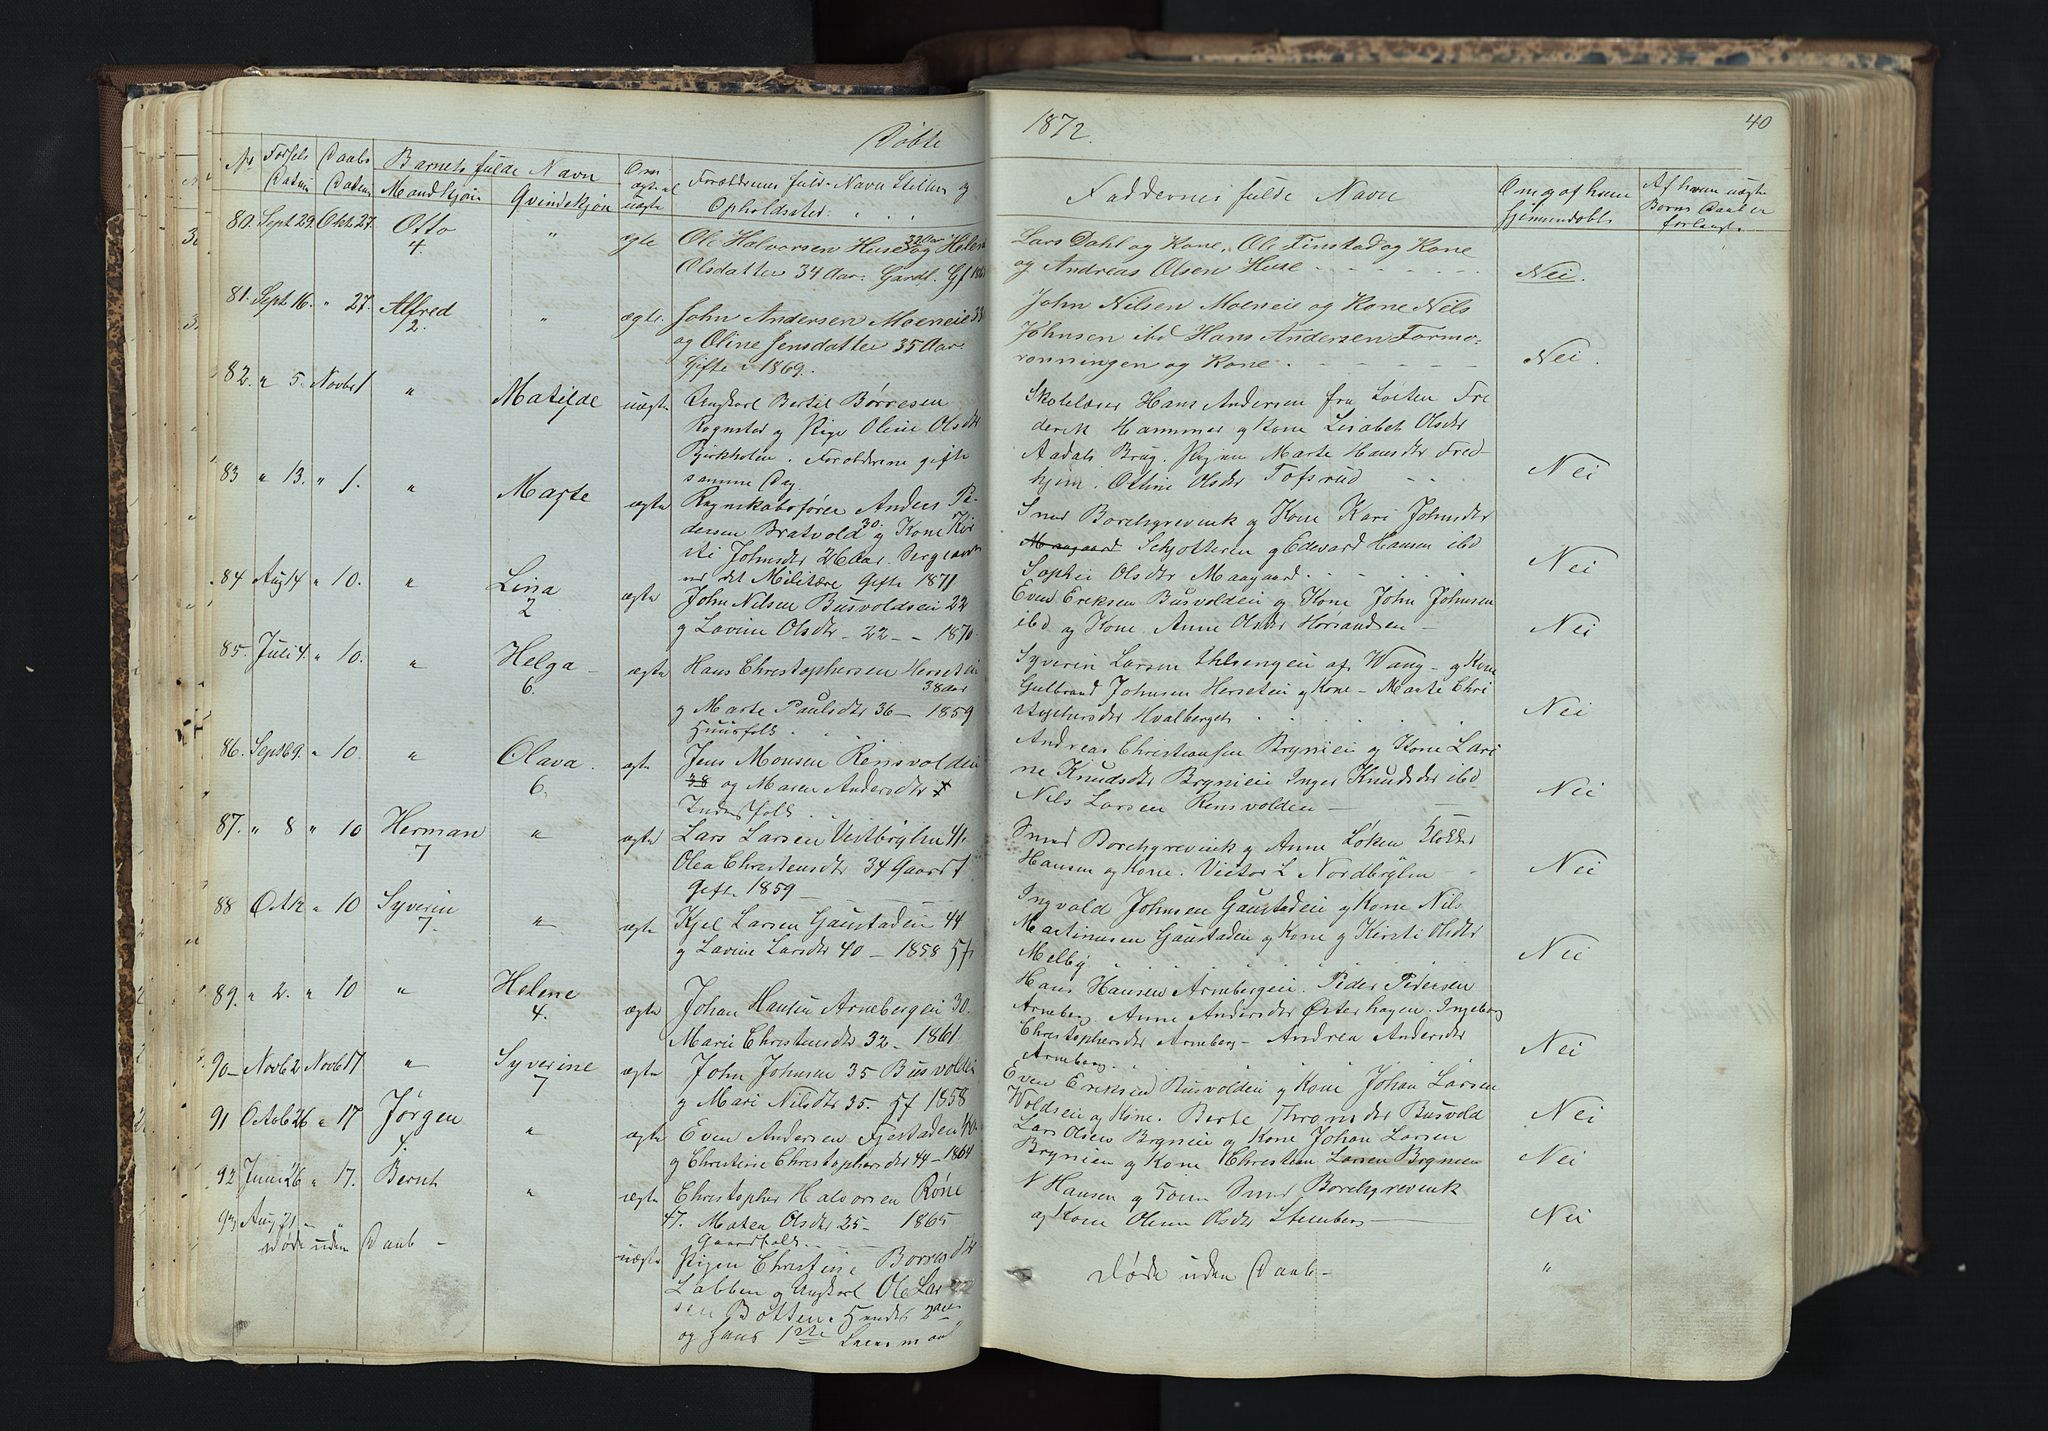 Døbte
1872.
40
No
Fødsels Datum
Daabs Datum
Barnets fulde Navn
Mandkjøn
Qvindekjøn
Om ægte el uægte
Forældrenes fulde Navn Stilling og
Opholdssted.
Faddernes fulde Navn
Om og af hvem
hjemmedøbt
Af hvem uægte
Børns Daab er
forlangt
80. Sept 29. Okt. 27. Otto " ægte Ole Halvorsen Huse 32 Aar og Helene
4.
Olsdatter 34 Aar. Gardf. Gf
Lars Dahl og Kone, Ole Finstad og Kone
og Andreas Olsen Huse
Nei.
81. Sept 16. " 27. Alfred " ægte John Andersen Moeneie 33
2.
og Oline Jensdatter 35 Aar.
Gifte i 1869.
John Nilsen Moeneie og Kone Nils
Johnsen ibd Hans Andersen Formo-
rønningen og Kone.
Nei.
82. " 5. Novbr 1 " Matilde uægte Ungkarl Bertil Børresen
Rognstad og Pige Oline Olsdtr
Birkholen. Forældrene gifte
samme Dag
Skolelærer Hans Andersen fra Løiten Fre
derik Hammer og Kone Lisabet Olsdtr
Aadals Brug. Pigen Marte Hansdtr Fred-
hjem. Olline Olsdtr Tofsrud
Nei
83 " 13. " 1. " Marte ægte Regnskabsfører Anders Pe-
dersen Bratvold 30. og Kone Kir
sti Johnsdtr 26 Aar. Sergeant
ved det Militære Gifte 1871
Smed Borchgrevink og Kone Kari Johnsdtr
Maagaard Schjotteren og Edevard Hansen ibd
Sophie Olsdtr Maagaard
Nei
84 Aug 14 " 10. " Lina ægte John Nilsen Busvoldeie 22
2
og Lovine Olsdtr - 22 - - 1870.
Even Eriksen Busvoldeie og Kone John Johnsen
ibd og Kone Anne Olsdtr
Nei
85. Juli 4. " 10. " Helga - ægte Hans Christophersen Herseteie
6.
38 Aar
og Marte Paulsdtr 36 - 1859
Huusfolk
Syverin Larsen af Wang - og Kone
Gulbrand Johnsen Herseteie og Kone - Marte Chri
stophersdtr Hvalberget
Nei
86. Sept 9. " 10. " Olava. ægte Jens Monsen Rensvoldeie
6.
38 og Maren Andersdtr
Inderstfolk
Andreas Christiansen Brynieie og Kone Lari
ne Knudsdtr Brynieie Inger Knudsdtr ibd
Nils Larsen Rensvolden -
Nei
87. " 8 " 10 Herman " ægte Lars Larsen Vestbÿlen 41.
7
Olea Christensdtr 34 Gaardf
Gift 1859
Smed Borchgrevink og Anne Løken Klokker
Hansen og Kone. Victor L Nordbÿlen
Nei
88 Okt " 10 Syverin " ægte Kjel Larsen Gaustadeie 44
7.
og Lovine Larsdtr 40 - 1858 Hf
Ingvald Johnsen Gaustadeie og Kone Nils
Martinusen Gaustadeie og Kone og Kirsti Olsdtr
Melby
Nei
89. " 2. " 10 " Helene ægte Johan Hansen Arnebergeie 30.
4.
Marie Christensdtr 32 - 1861
Hans Hansen Arnebergeie. Peder Pedersen
Arneberg Anne Andersdtr Østerhagen. Ingeborg
Christophersdtr Arneberg - Andrea Andersdtr
Arneberg
Nei
90 - Novb 2 Novb 17 " Syverine ægte John Johnsen 35 Busvoldeie
7
og Mari Nilsdtr 35. Hf 1858
Even Eriksen Busvoldeie og Kone Johan Larsen
Woldseie og Kone. Berte Thronsdtr Busvold
Nei
91 Octb 26 " 17 Jørgen " ægte Even Andersen Fjestadeie 40
4.
og Christine Christophersdtr 44 - 1864
Lars Olsen Brynieie og Kone Johan Larsen
Brynieie og Kone Christian Larsen Brynieie
Nei
92 Juni 26 " 17. Bernt " ægte Christopher Halvorsen Røne
47. Maten Olsdtr 25 - 1865
Gaardfolk
N Hansen og Smed Borchgrevink
og Kone Olsdtr Stenberg -
Nei
93 Aug 21 -
Døde uden Daab -
uægte Pigen Christine Borresdtr
Labben og Ungkarl Ole Lar
sen Botten. Hendes 2den
og hans 1ste
Døde uden Daab -
"